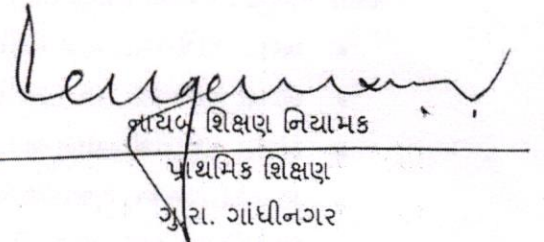 નાયબ શિક્ષણ નિયામક
પ્રાથમિક શિક્ષણ
ગુ.રા. ગાંધીનગર